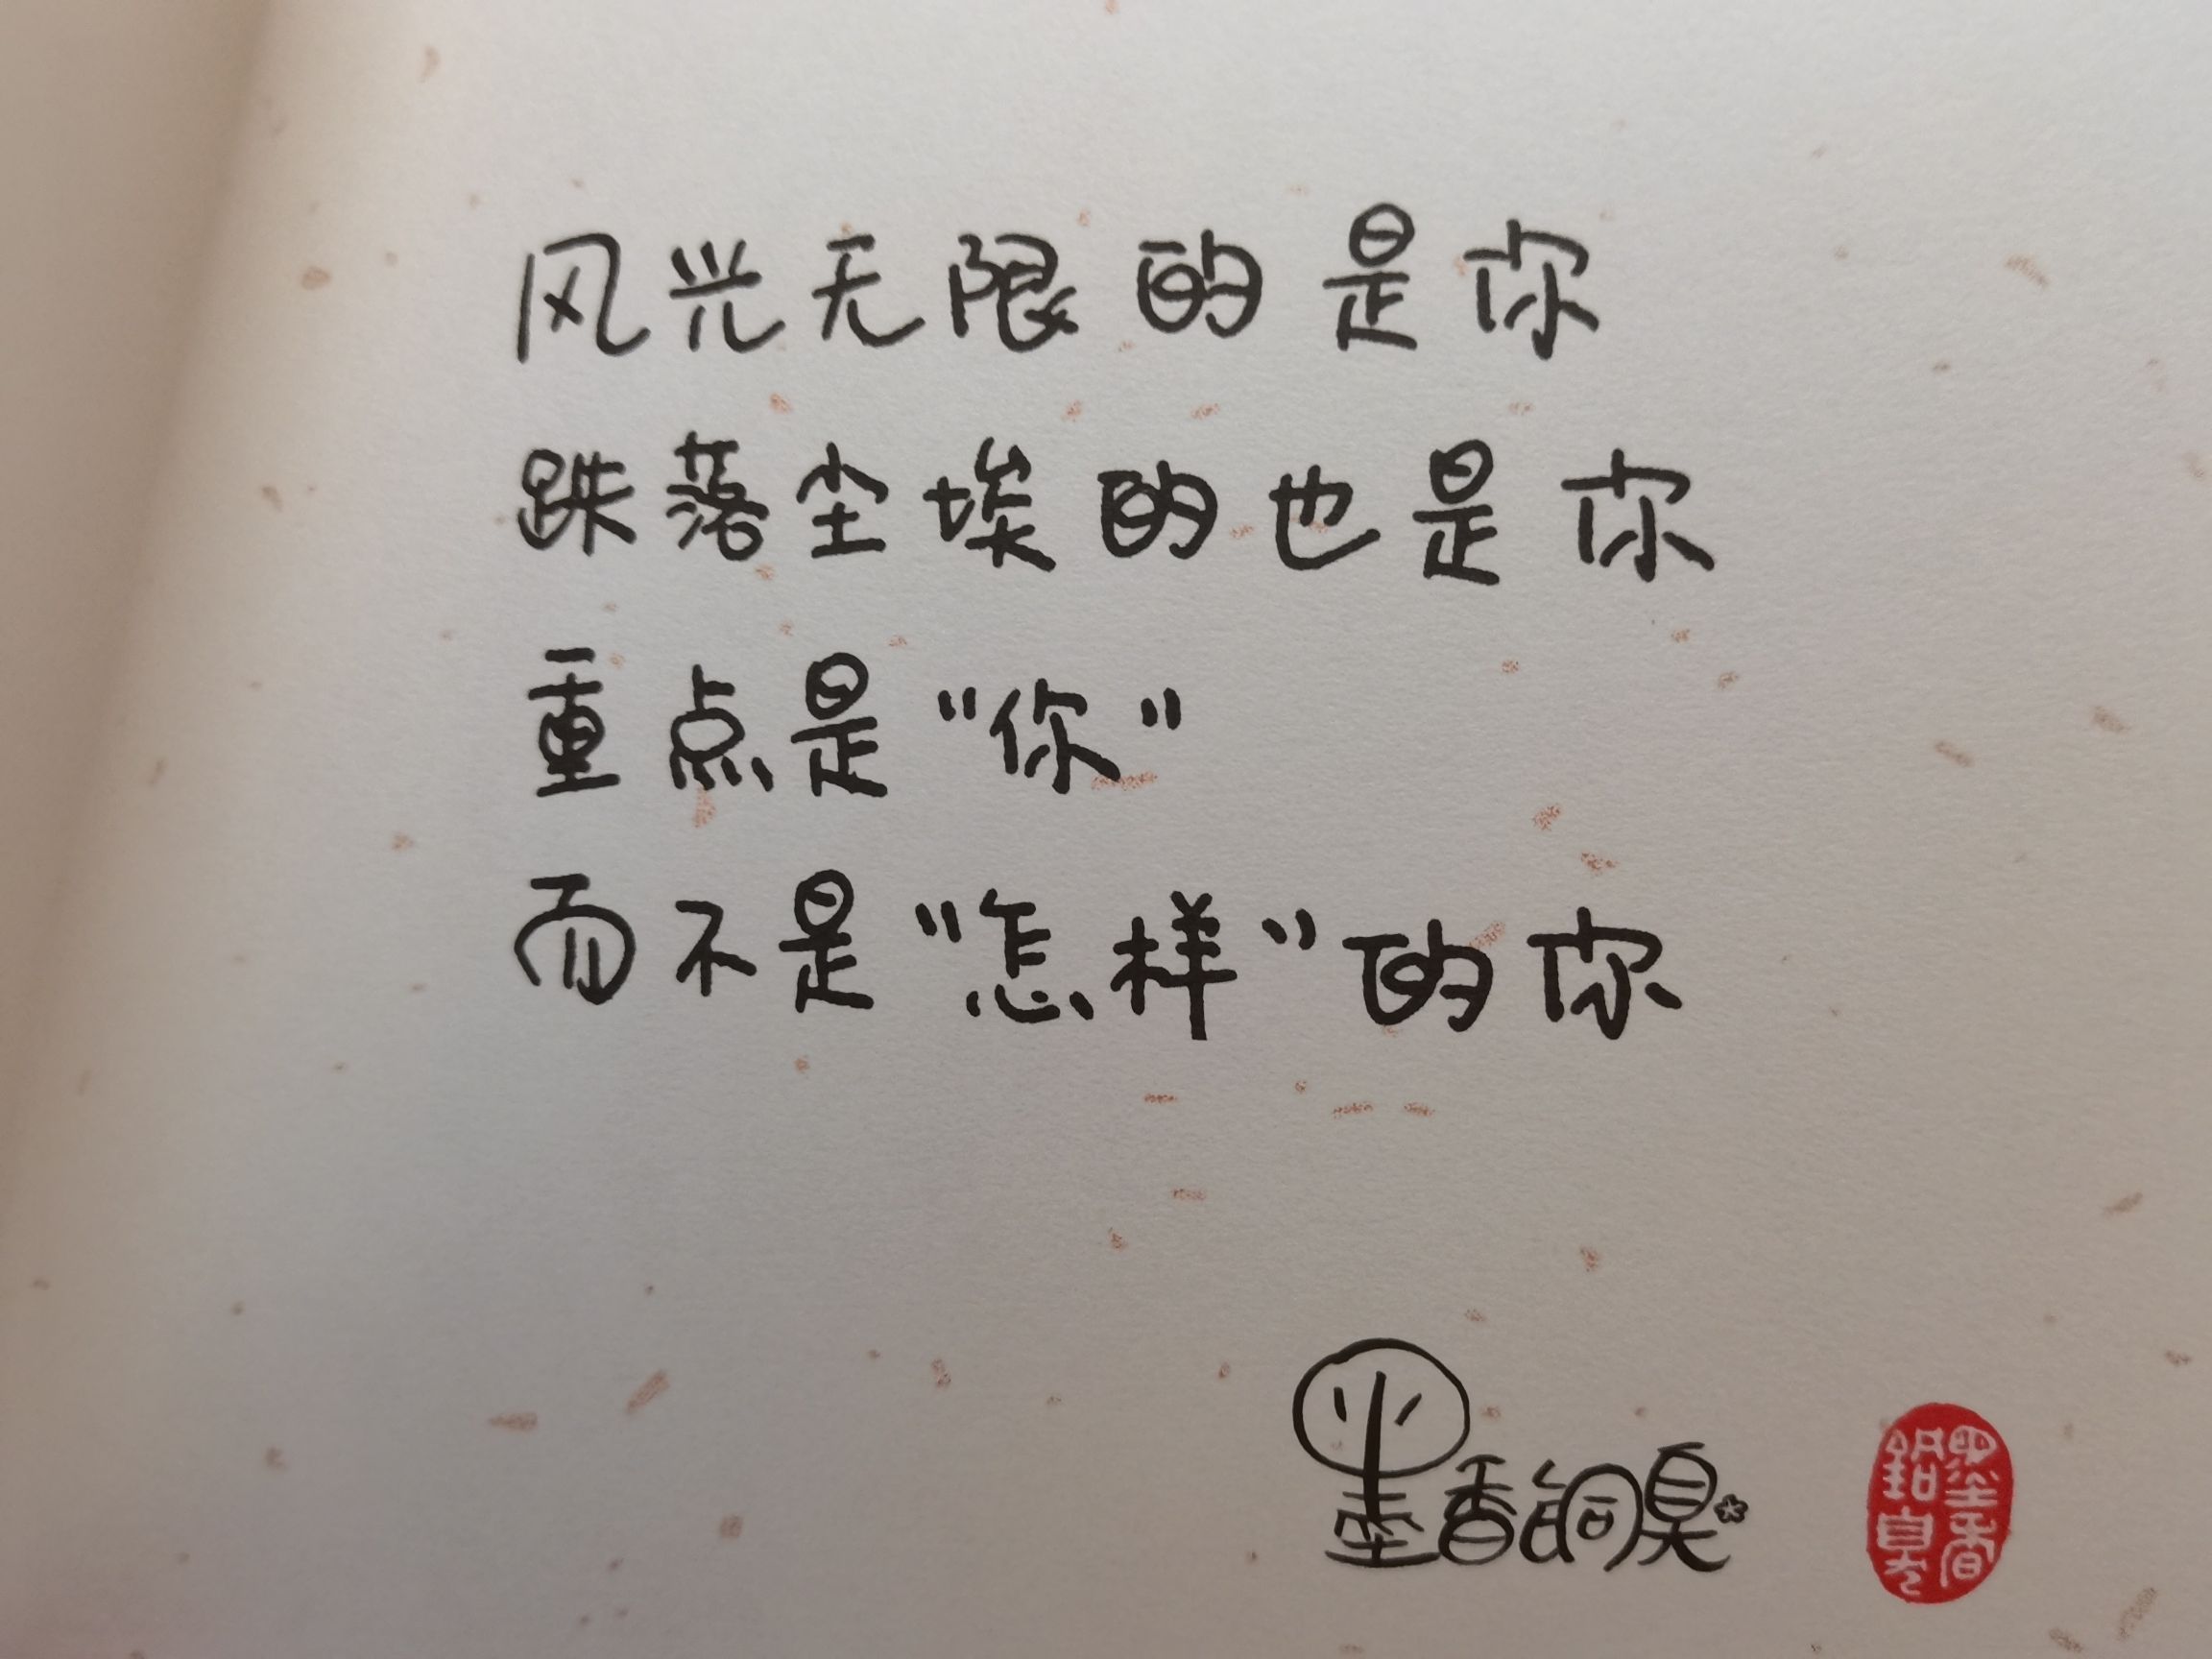 风光无限的是你
跌落尘埃的也是你
重点是“你”
而不是“怎样”的你
墨香铜臭
墨香
銅臭